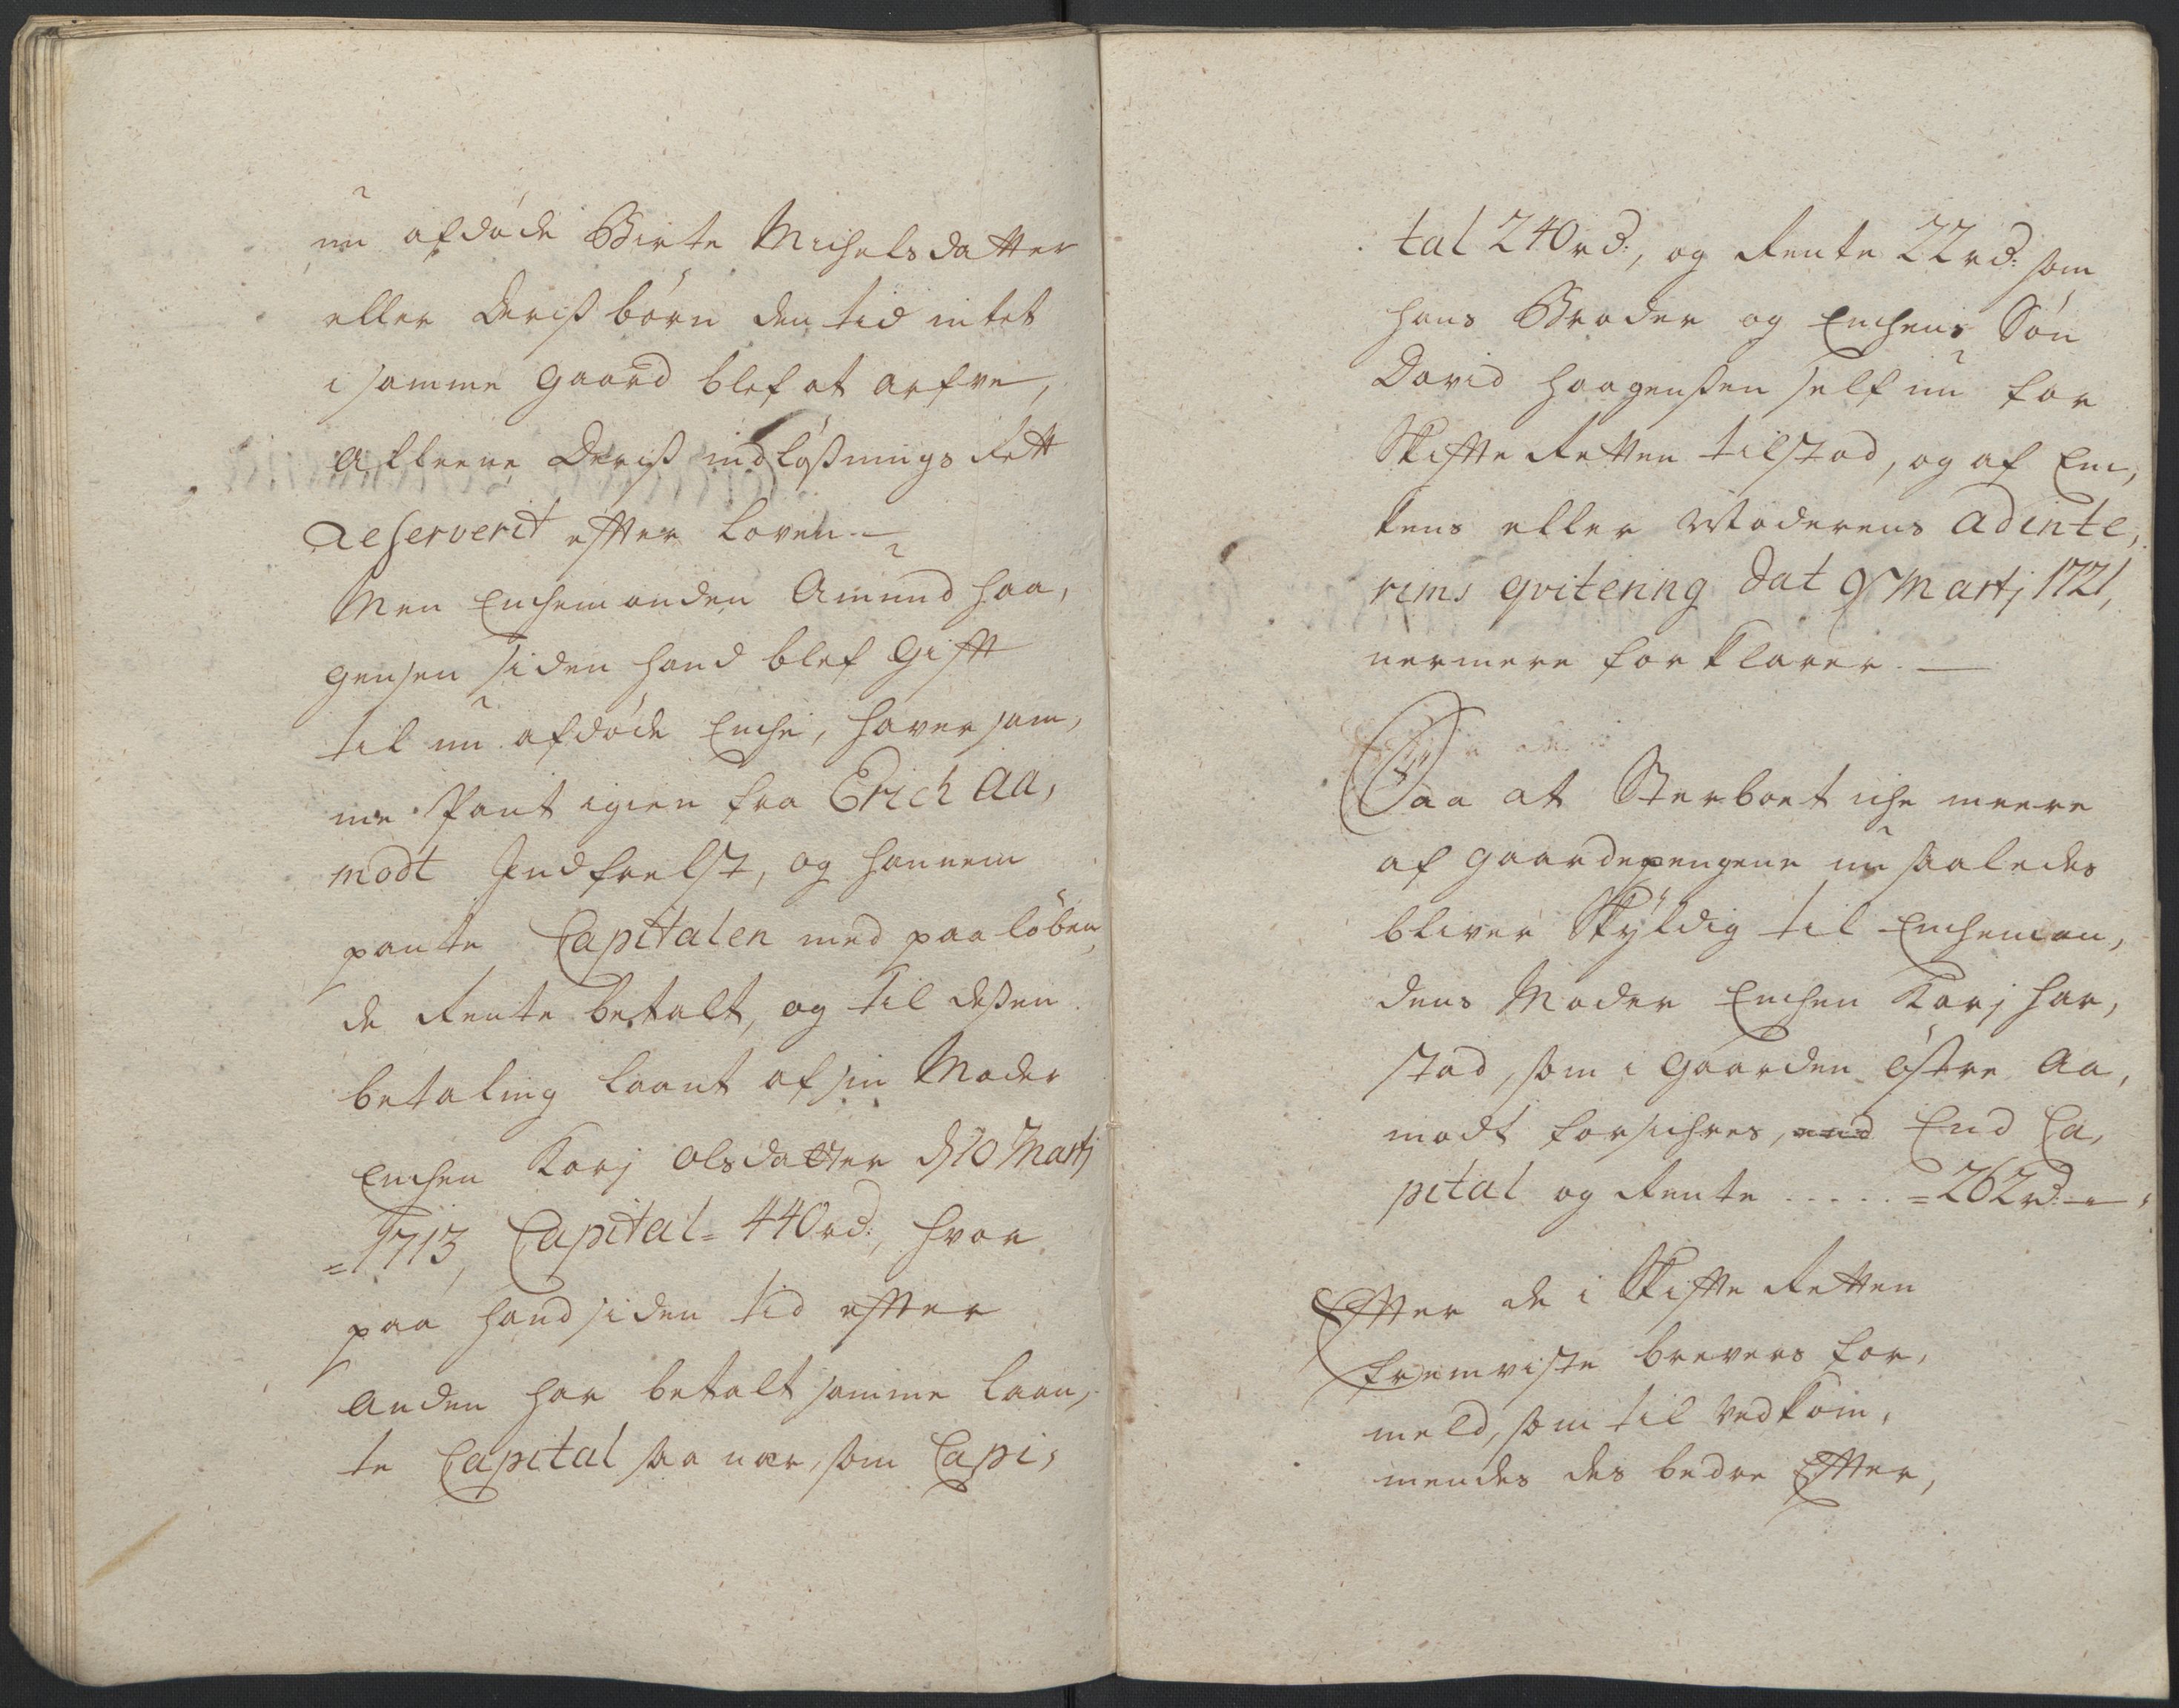 nu afdøde Birte Michelsdatter
eller Deris børn den tid intet
i samme Gaard blef at arfve,
Alleene Deris indløsnings Rett
Reserverit efter Loven. —
Men Enchemanden Amund Haa,
gensen siden hand blef Gift
til nu afdøde Enche, haver sam,
me Pant igien fra Erich Aa,
modt Indfrelst, og hannem
pante Capitalen med paaløben,
de Rente betalt, og til deßen
betaling laant af sin Moder
Enchen Karj Olsdatter d 10 Martj
=1713, Capital= 440 rd:, hvor
paa hand siden tid efter
anden har betalt samme laan,
te Capital saa nær, som Capi,
tal 240 rd:, og Rente 22 rd: som
hans Broder og Enchens Søn
David Haagenßen self nu for
Skifte Retten tilstod, og af En,
kens eller Moderens adinte,
rims qvitering dat 9 Martj 1721,
nermere forklarer. —
Saa at Sterboet iche meere
af Gaardepengene nu saaledes
bliver Skyldig til Encheman,
dens Moder Enchen Karj Har,
stad, som i Gaarden østre Aa,
modt forsichres, end End Ca,
pital og Rente ..... = 262 rd: —
Efter de i Skifte Retten
fremviste brevers for,
meld, som til Vedkom,
mendes des bedre Efter,